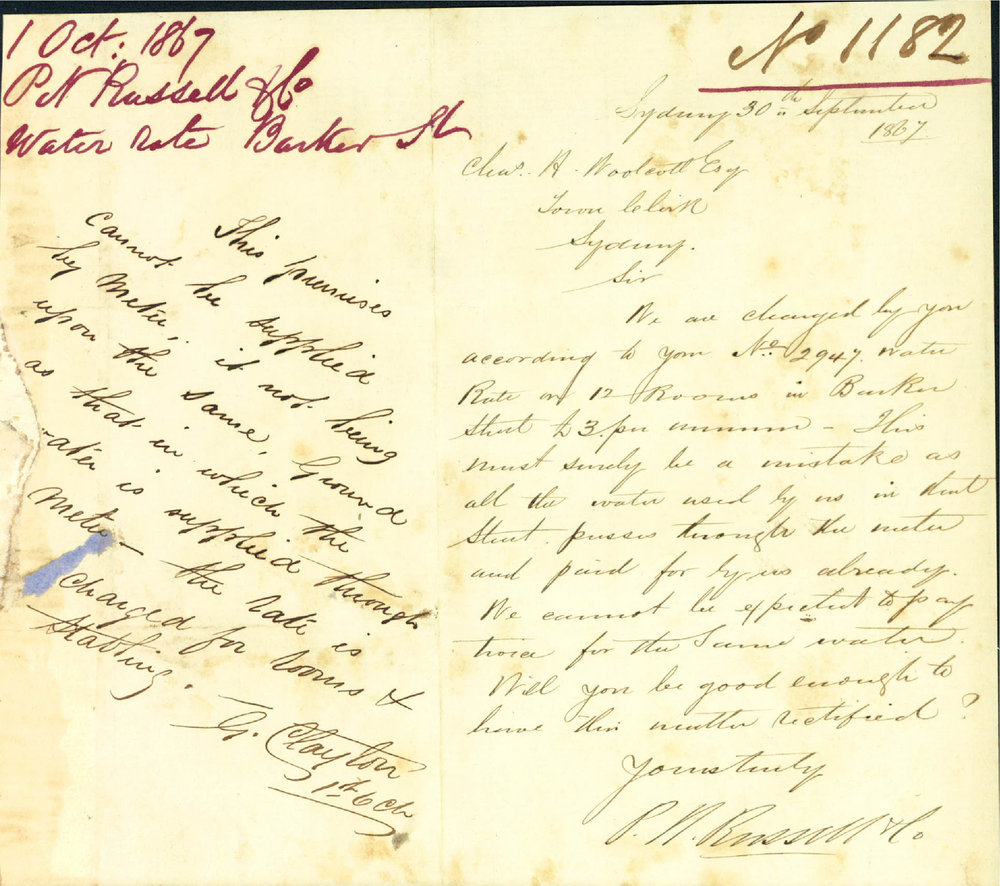 1 Oct: 1867
P N Russell & Co
Water rate Barker St
No 1182
Sydney 30th September
1867.
Chas. H. Woolcott Esq
Town Clerk
Sydney.
Sir
We are charged by you
according to your No. 2947. Water
Rate on 12 Rooms in Barker
Street £3. per annum - This
must surely be a mistake as
all the water used by us in that
Street. passes through the meter
and paid for by us already.
We cannot be expected to pay
twice for the Same water.
Will you be good enough to
have this matter rectified?
Yours truly
P. N. Russell & Co
This premises
cannot be supplied
by Meter, it not being
upon the same, Ground
as that in which the
water is supplied through
Meter - the rate is
charged for rooms &
Stabling.
G. Clayton
1st Oct